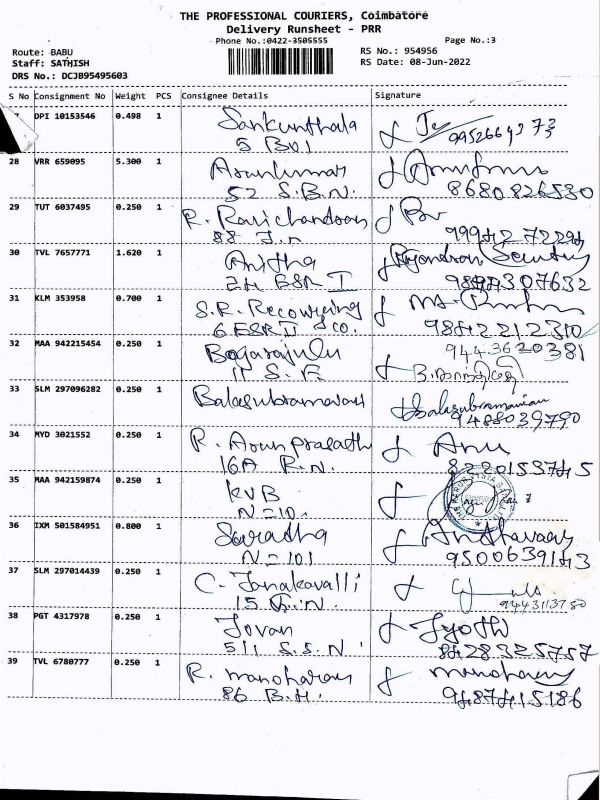 THE PROFESSIONAL COURIERS, Coimbatore
Delivery Runsheet - PRR
Phone No.:0422-3505555 Page No.:3
Route: BABU RS No.: 954956
Staff: SATHISH RS Date: 08-Jun-2022
DRS No.: DCJB95495603
S No Consignment No Weight PCS Consignee Details Signature
DPI 10153546 0.498 1 Sankunthala
5 B01
28 VRR 659095 5.300 1 Arunkumar
52 S.B.N. 8680826530
29 TUT 6037495 0.250 1 R. Ravichandran
88
30 TVL 7657771 1.620 1 Anitha Rajendran Security
2H BSR I 9894307632
31 KLM 353958 0.700 1 S.R. Recowering
6 ESR II & co. 9842212310
32 MAA 942215454 0.250 1 9443620381
11 S.F.
33 SLM 297096282 0.250 1 Balasubramaniam Balasubramanian
9488039790
34 MYD 3021552 0.250 1 R. Arun prasath Anu
16A R.N. 8220153745
35 MAA 942159874 0.250 1 KVB
N=10.
36 IXM 501584951 0.800 1 Saradha
N=101 9500639143
37 SLM 297014439 0.250 1 C. Janakavalli
15 9443113780
38 PGT 4317978 0.250 1 Jovan Jyothi
511 S.S.N. 8428325757
39 TVL 6780777 0.250 1 R. manoharan manoharan
86 B.H. 9487415186